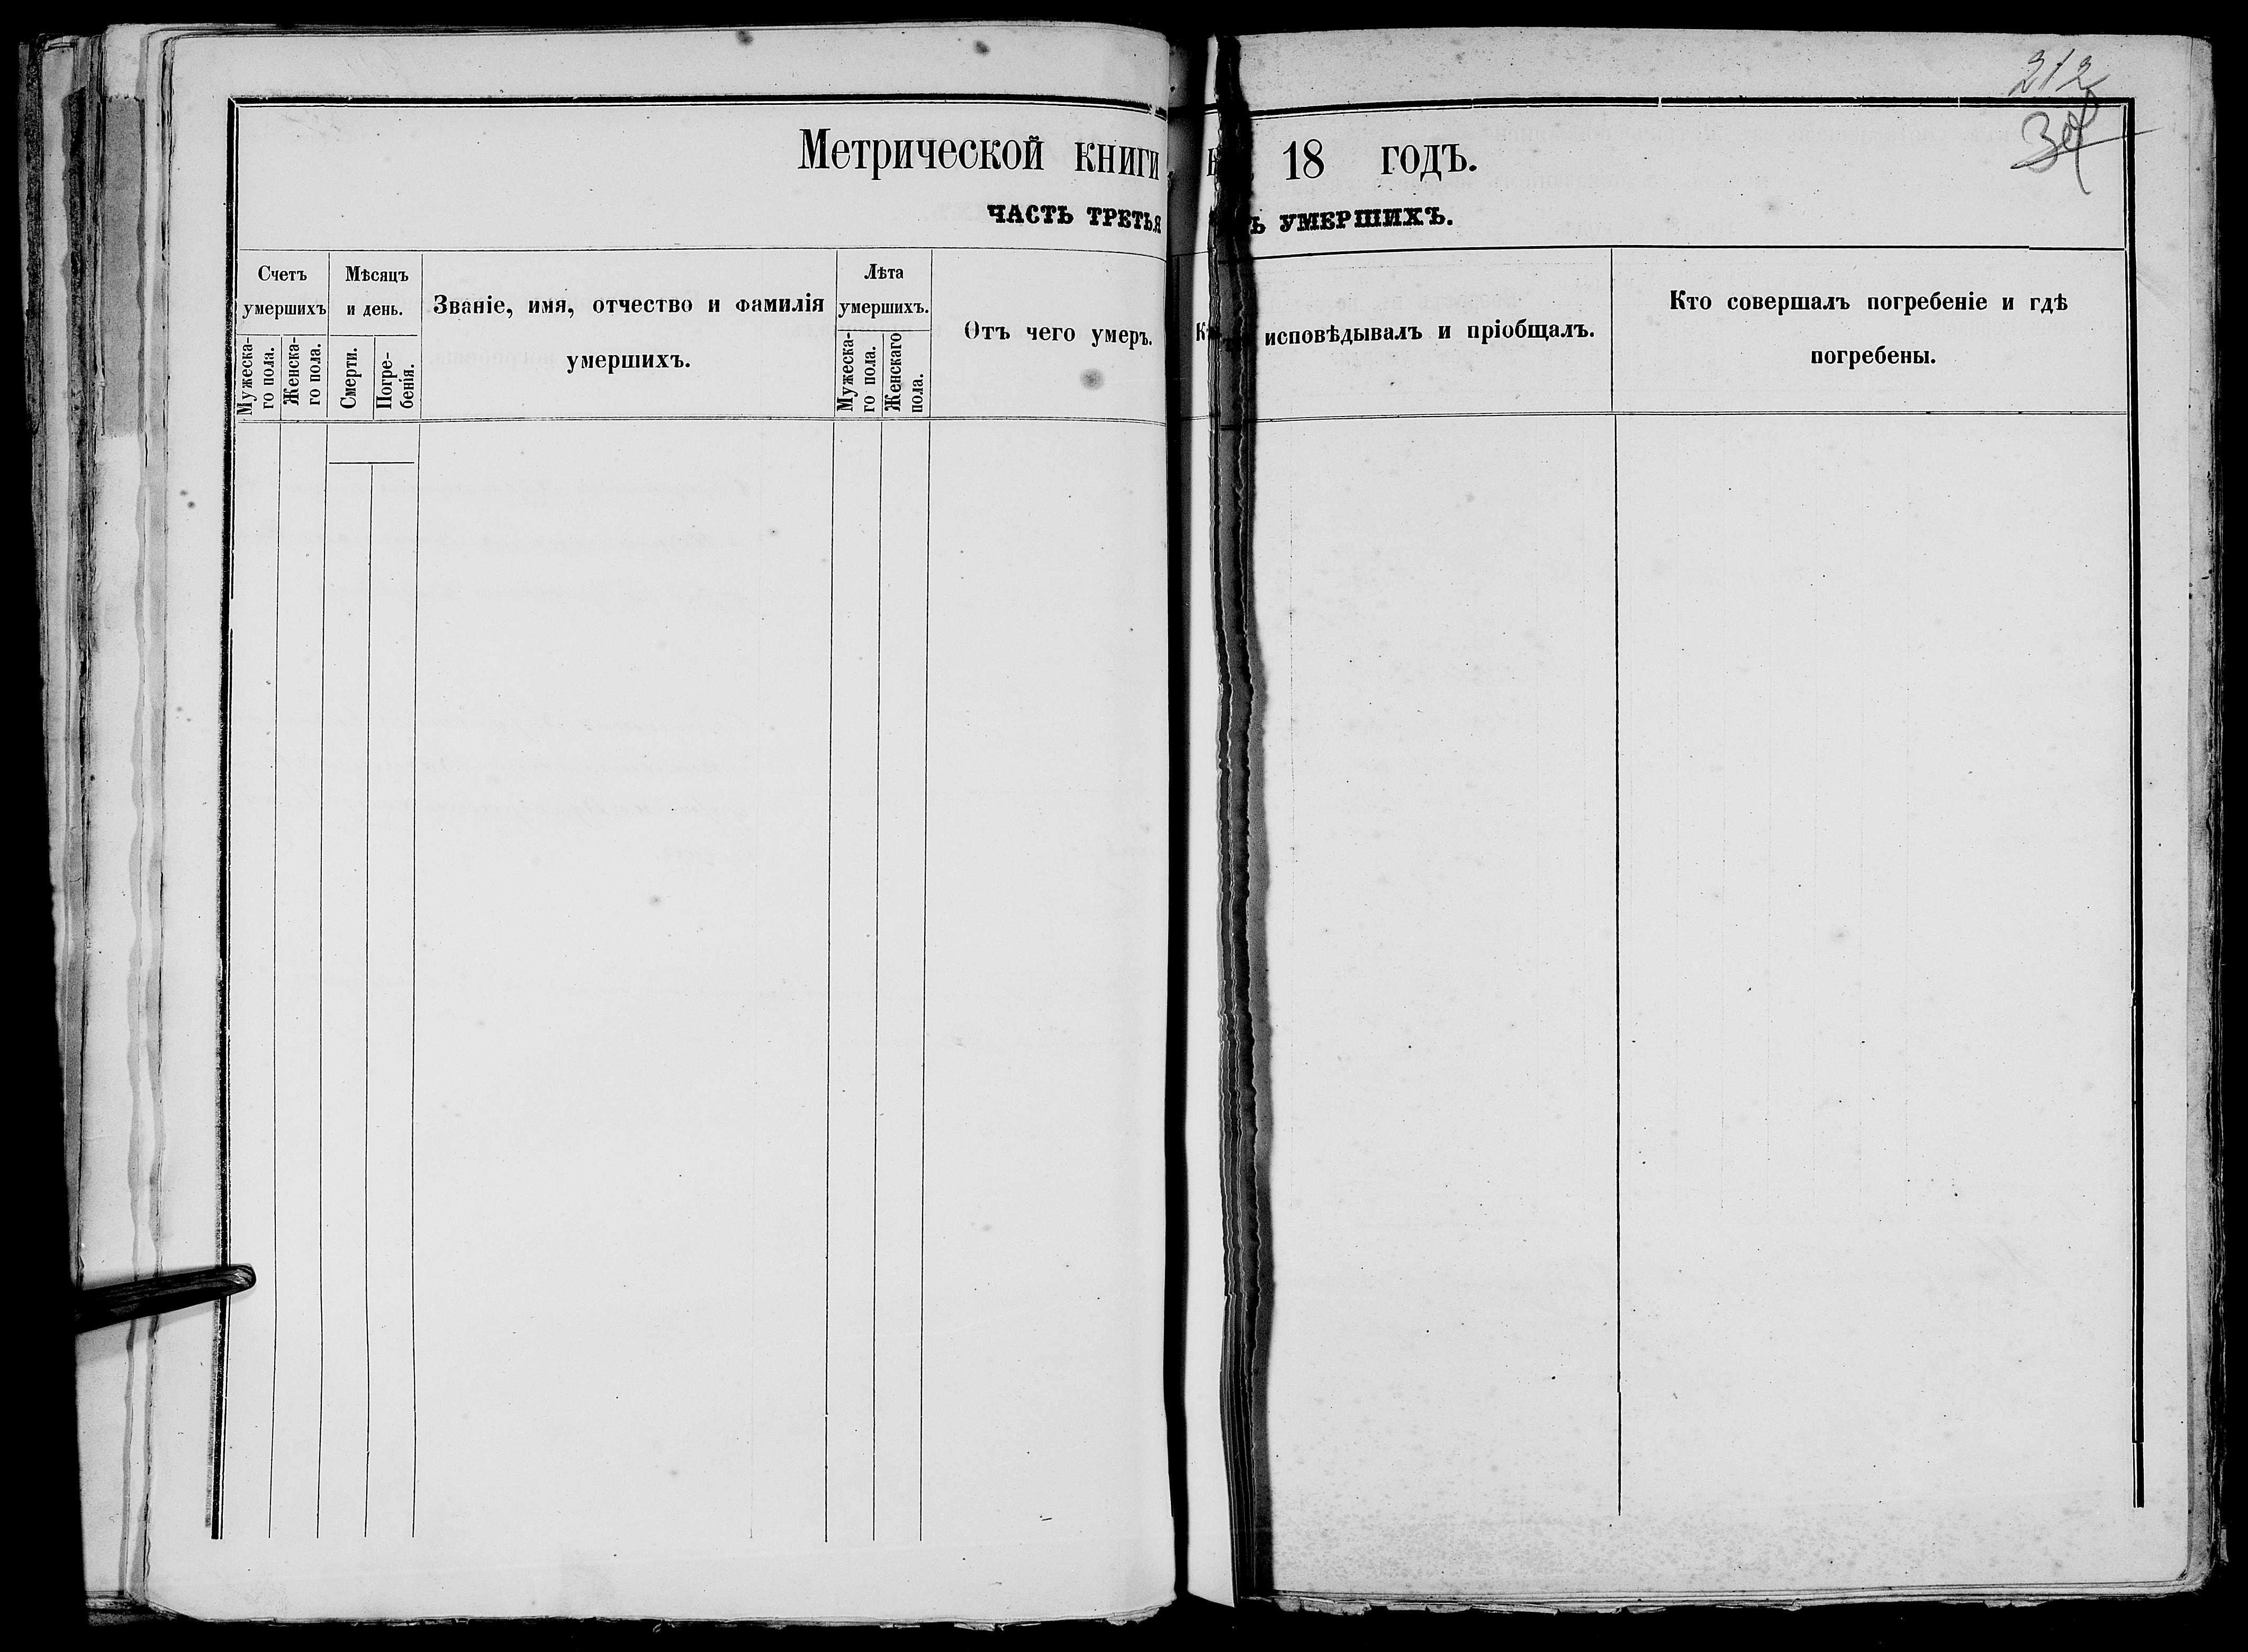 212
Метрической книги 18 годъ.
ЧАСТЬ ТРЕТЬЯ УМЕРШИХЪ.
Счетъ
умершихъ
Мужеска-
го пола.
Женска-
го пола.
Мѣсяцъ
и день.
Смерти.
Погре-
бенія.
Званіе, имя, отчество и фамилія
умершихъ.
Лѣта
умершихъ.
Мужеска-
го пола.
Женскаго
пола.
Отъ чего умеръ.
исповѣдывалъ и пріобщалъ.
Кто совершалъ погребеніе и гдѣ
погребены.